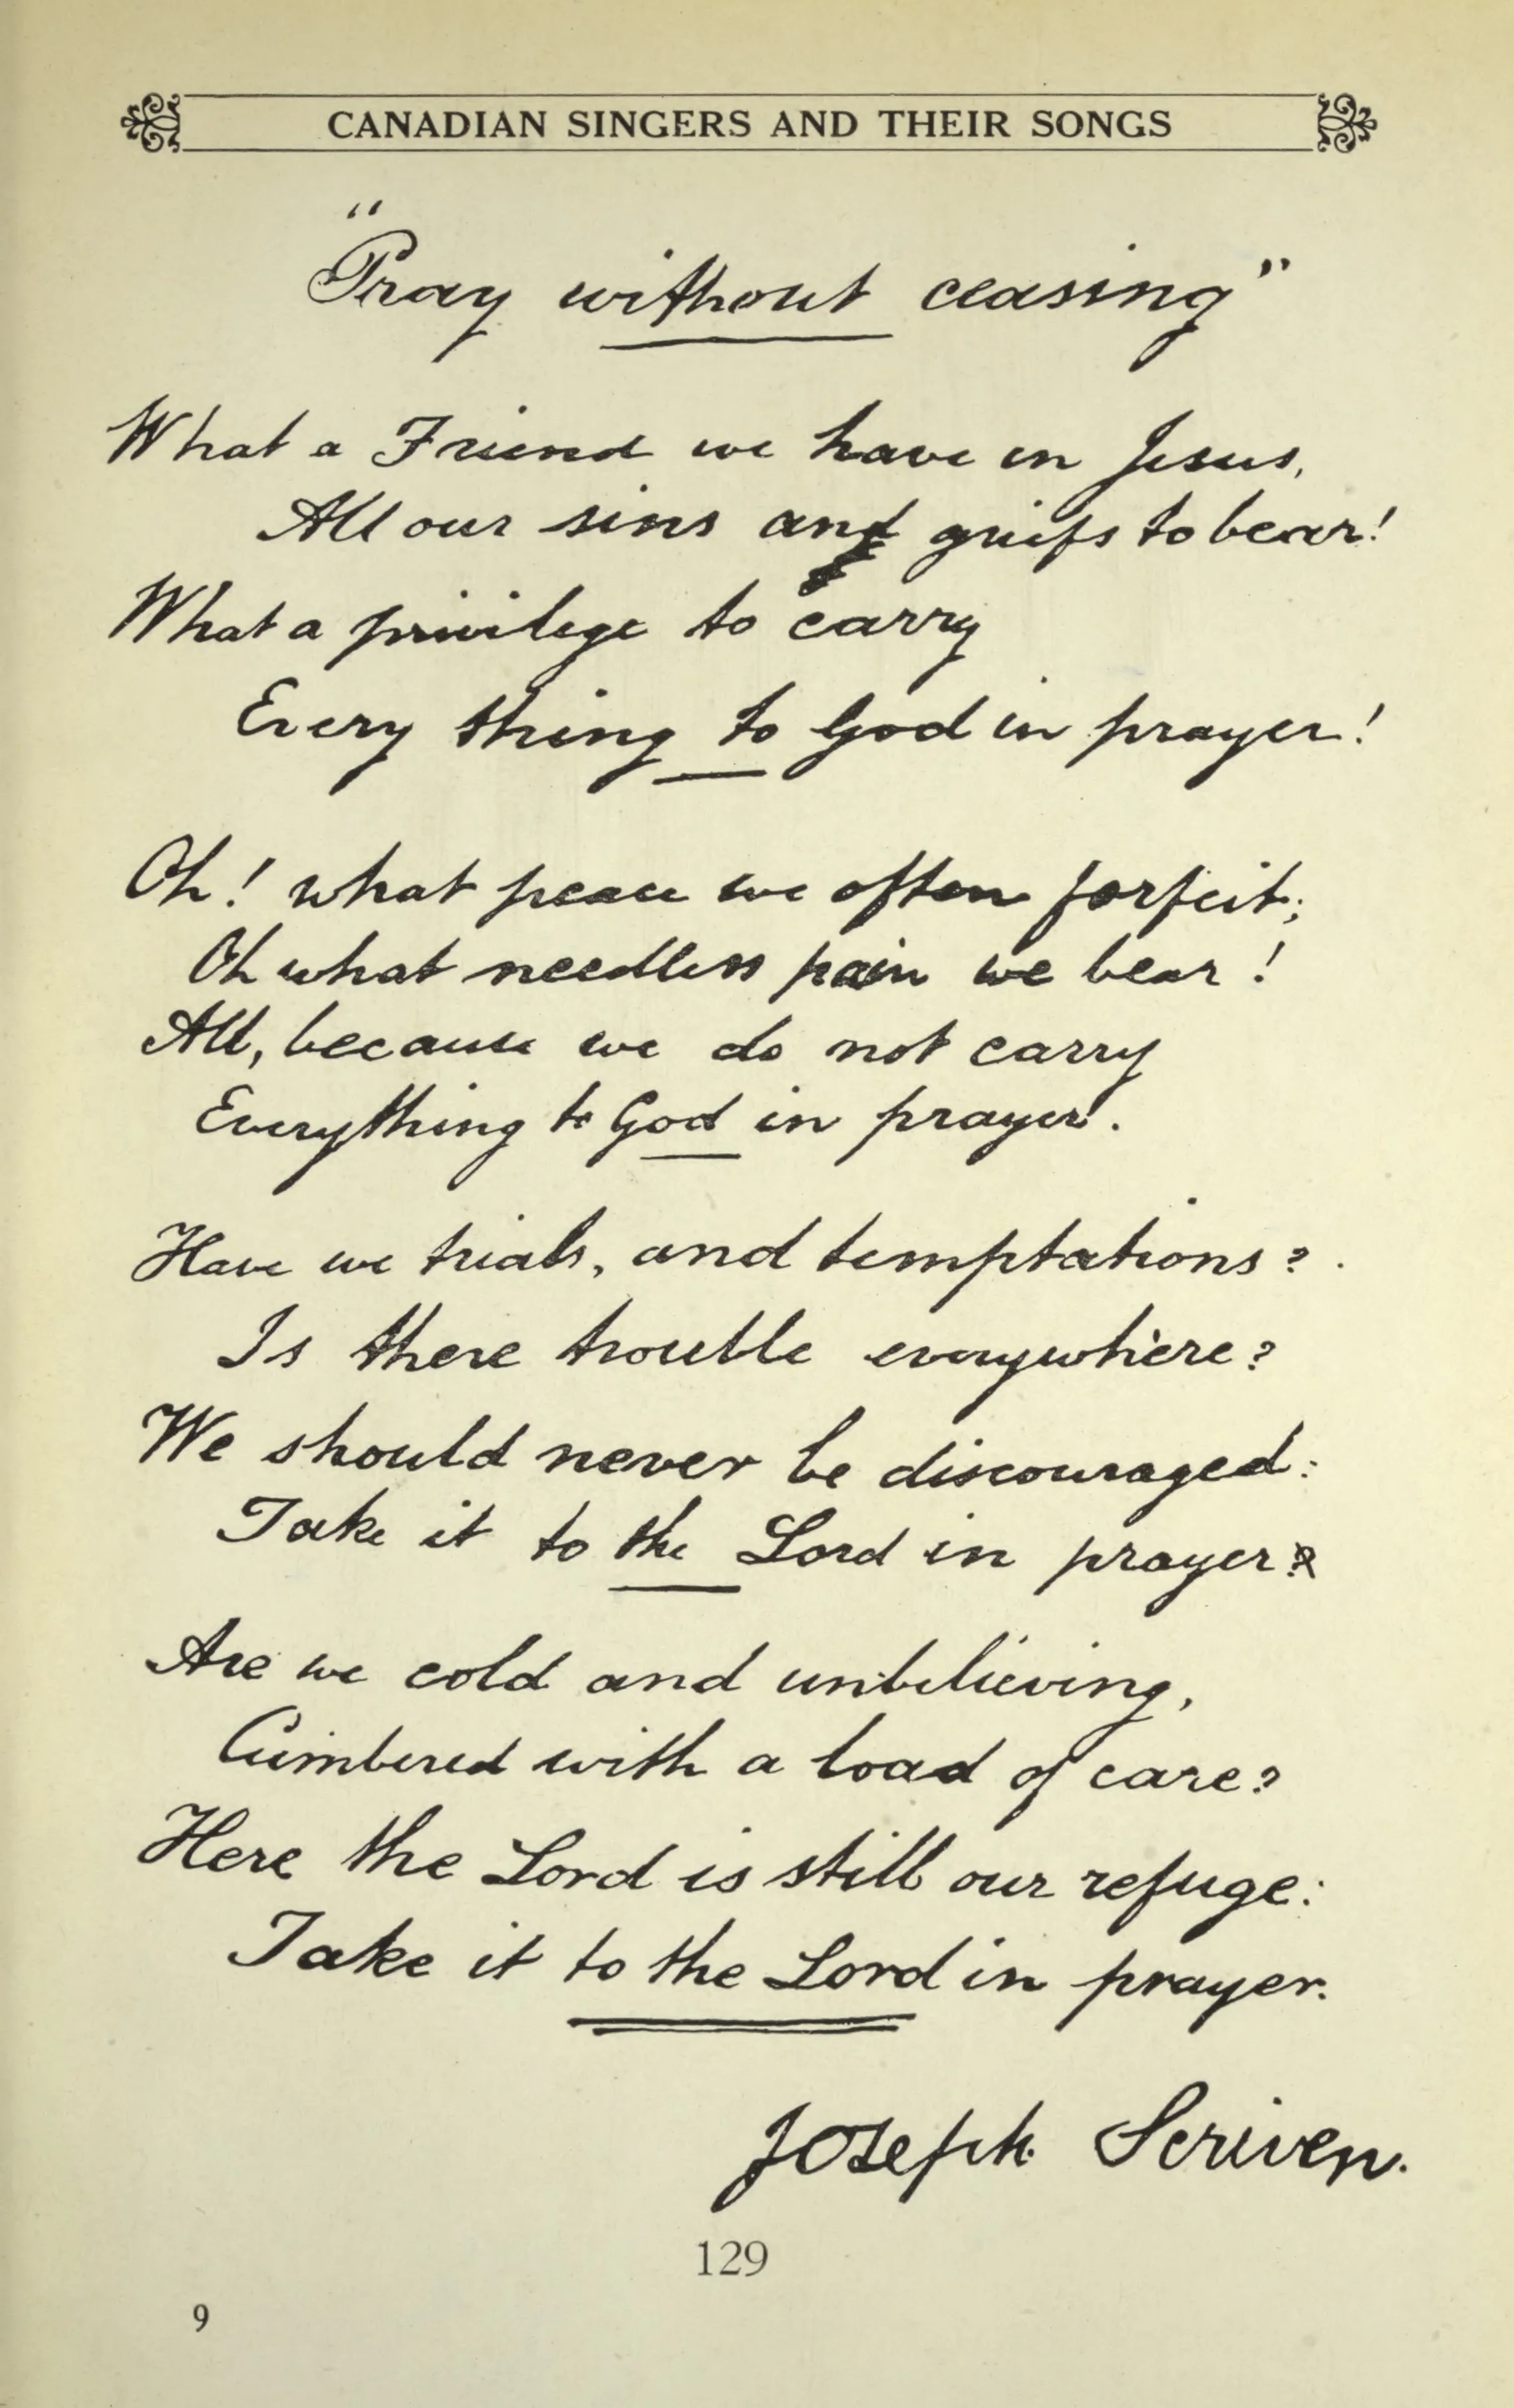 CANADIAN SINGERS AND THEIR SONGS
"Pray without ceasing"
What a Friend we have in Jesus,
All our sins and griefs to bear!
What a privilege to carry
Every thing to God in prayer!
Oh! what peace we often forfeit;
Oh what needless pain we bear!
All, because we do not carry
Everything to God in prayer.
Have we trials, and temptations?
Is there trouble everywhere?
We should never be discouraged:
Take it to the Lord in prayer.
Are we cold and unbelieving,
Cumbered with a load of care?
Here the Lord is still our refuge:
Take it to the Lord in prayer.
Joseph Scriven.
129
9